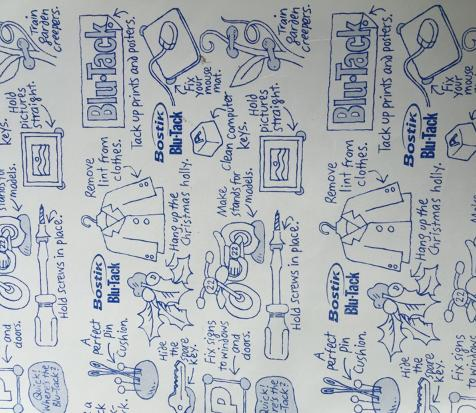 Train
garden
creepers.
Blu·Tack
Tack up prints and posters.
Fix
your
mouse
mat.
Bostik
Blu·Tack
Hold
pictures
straight.
keys.
Clean computer
Remove
lint from
clothes.
stands for
models.
Hang up the
Christmas holly.
Hold screws in place.
Bostik
Blu·Tack
and
doors.
A
perfect
pin
Cushion.
Hide
the
spare
key.
Quick!
Where's the
Blu·Tack?
Train
garden
creepers.
Blu·Tack
Tack up prints and posters.
Fix
your
mouse
mat.
Bostik
Blu·Tack
Hold
pictures
straight.
keys.
Remove
lint from
clothes.
Make
stands for
models.
22
Hang up the
Christmas holly.
Hold screws in place.
Bostik
Blu·Tack
Fix signs
to windows
and
doors.
P
A
perfect
pin
Cushion.
Hide
the
spare
key.
Fix signs
to windows